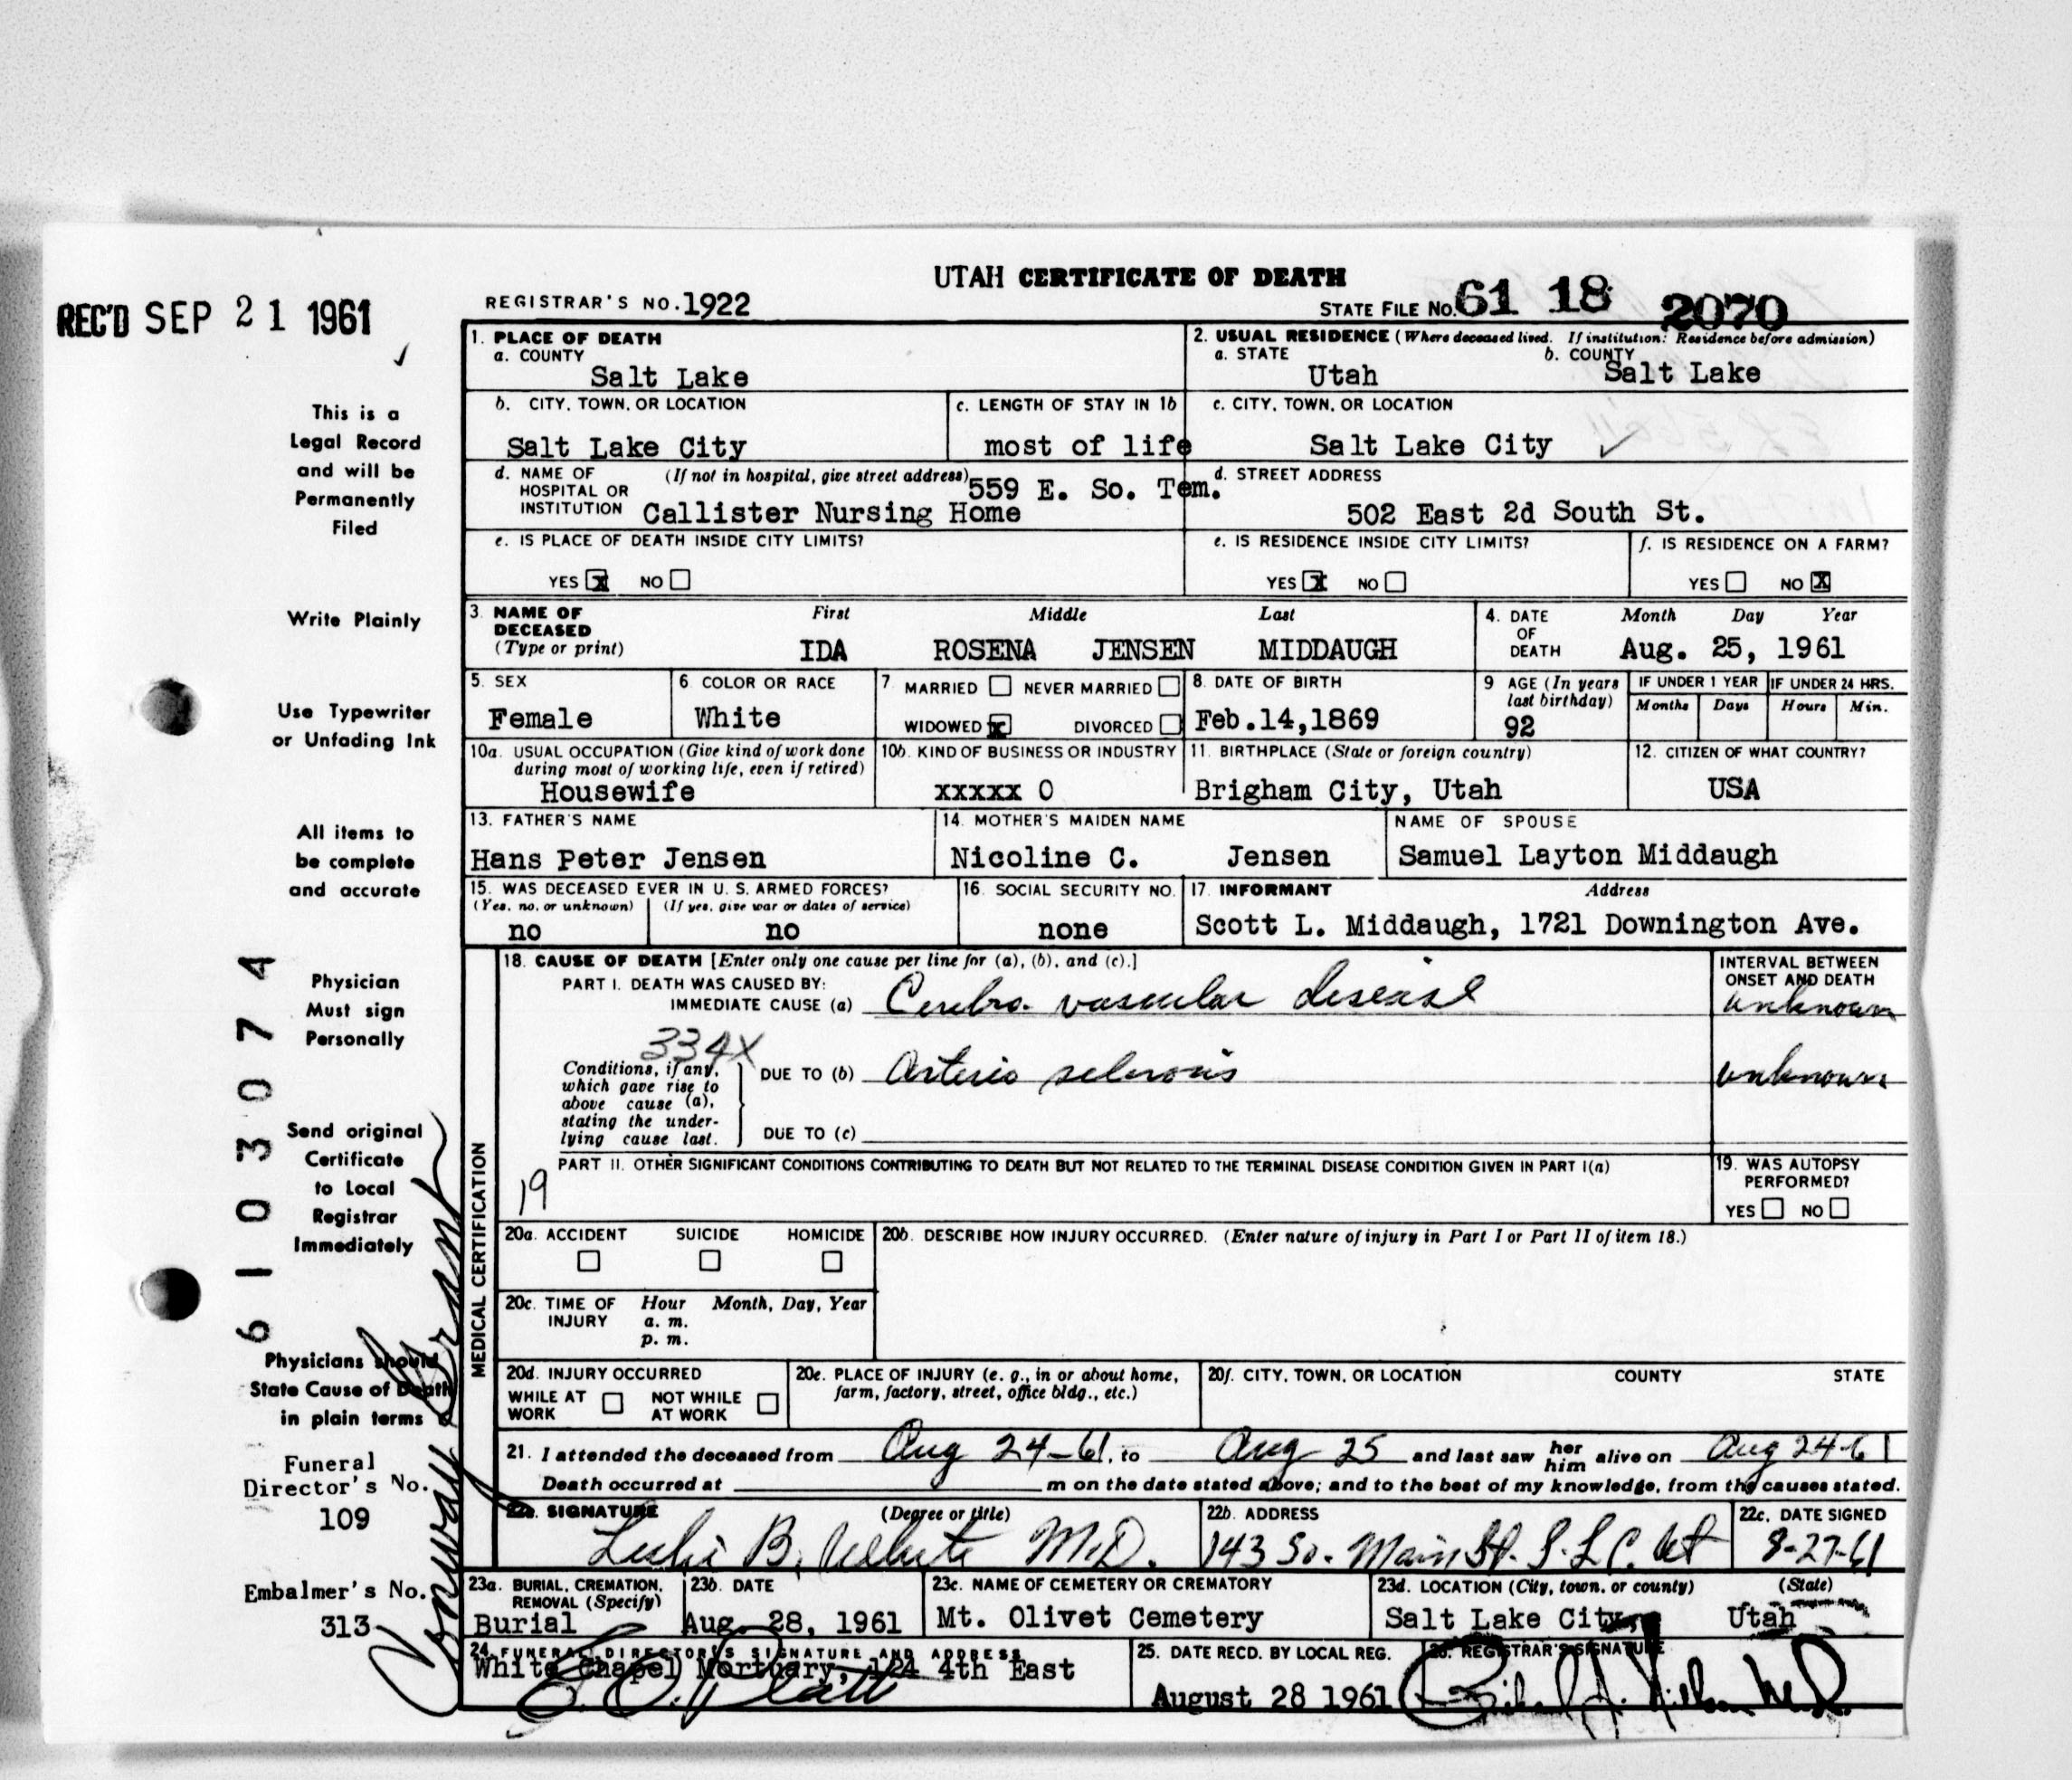 UTAH CERTIFICATE OF DEATH
REC'D SEP 21 1961
REGISTRAR'S NO. 1922
STATE FILE NO. 61 18 2070
1. PLACE OF DEATH
a. COUNTY
Salt Lake
2. USUAL RESIDENCE (Where deceased lived. If institution: Residence before admission)
a. STATE b. COUNTY
Utah Salt Lake
b. CITY, TOWN, OR LOCATION
Salt Lake City
c. LENGTH OF STAY IN 1b
most of life
c. CITY, TOWN, OR LOCATION
Salt Lake City
d. NAME OF HOSPITAL OR INSTITUTION (If not in hospital, give street address)
559 E. So. Tem.
Callister Nursing Home
d. STREET ADDRESS
502 East 2d South St.
e. IS PLACE OF DEATH INSIDE CITY LIMITS?
YES X NO
e. IS RESIDENCE INSIDE CITY LIMITS?
YES X NO
f. IS RESIDENCE ON A FARM?
YES NO X
3. NAME OF DECEASED (Type or print) First Middle Last
IDA ROSENA JENSEN MIDDAUGH
4. DATE OF DEATH Month Day Year
Aug. 25, 1961
5. SEX
Female
6. COLOR OR RACE
White
7 MARRIED NEVER MARRIED
WIDOWED x DIVORCED
8. DATE OF BIRTH
Feb.14,1869
9 AGE (In years last birthday)
92
IF UNDER 1 YEAR
Months Days
IF UNDER 24 HRS.
Hours Min.
10a. USUAL OCCUPATION (Give kind of work done during most of working life, even if retired)
Housewife
10b. KIND OF BUSINESS OR INDUSTRY
xxxxx 0
11. BIRTHPLACE (State or foreign country)
Brigham City, Utah
12. CITIZEN OF WHAT COUNTRY?
USA
13. FATHER'S NAME
Hans Peter Jensen
14. MOTHER'S MAIDEN NAME
Nicoline C. Jensen
NAME OF SPOUSE
Samuel Layton Middaugh
15. WAS DECEASED EVER IN U. S. ARMED FORCES?
(Yes, no, or unknown) (If yes, give war or dates of service)
no no
16. SOCIAL SECURITY NO.
none
17. INFORMANT Address
Scott L. Middaugh, 1721 Downington Ave.
18. CAUSE OF DEATH [Enter only one cause per line for (a), (b), and (c).]
PART I. DEATH WAS CAUSED BY:
IMMEDIATE CAUSE (a) Cerebro-vascular disease
INTERVAL BETWEEN ONSET AND DEATH
unknown
334X
Conditions, if any, which gave rise to above cause (a), stating the underlying cause last.
DUE TO (b) Arterio sclerosis
unknown
DUE TO (c)
PART II. OTHER SIGNIFICANT CONDITIONS CONTRIBUTING TO DEATH BUT NOT RELATED TO THE TERMINAL DISEASE CONDITION GIVEN IN PART I(a)
19
19. WAS AUTOPSY PERFORMED?
YES NO
MEDICAL CERTIFICATION
20a. ACCIDENT SUICIDE HOMICIDE
20b. DESCRIBE HOW INJURY OCCURRED. (Enter nature of injury in Part I or Part II of item 18.)
20c. TIME OF INJURY Hour Month, Day, Year
a. m.
p. m.
20d. INJURY OCCURRED
WHILE AT WORK NOT WHILE AT WORK
20e. PLACE OF INJURY (e. g., in or about home, farm, factory, street, office bldg., etc.)
20f. CITY, TOWN, OR LOCATION COUNTY STATE
21. I attended the deceased from Aug 24-61, to Aug 25 and last saw her him alive on Aug 24-61
Death occurred at m on the date stated above; and to the best of my knowledge, from the causes stated.
22a. SIGNATURE (Degree or title)
Leslie B. White M.D.
22b. ADDRESS
143 So. Main St. S.L.C. Ut
22c. DATE SIGNED
8-27-61
23a. BURIAL, CREMATION, REMOVAL (Specify)
Burial
23b. DATE
Aug. 28, 1961
23c. NAME OF CEMETERY OR CREMATORY
Mt. Olivet Cemetery
23d. LOCATION (City, town, or county) (State)
Salt Lake City, Utah
24. FUNERAL DIRECTOR'S SIGNATURE AND ADDRESS
White Chapel Mortuary, 124 4th East
25. DATE RECD. BY LOCAL REG.
August 28 1961
26. REGISTRAR'S SIGNATURE
This is a
Legal Record
and will be
Permanently
Filed
Write Plainly
Use Typewriter
or Unfading Ink
All items to
be complete
and accurate
Physician
Must sign
Personally
Send original
Certificate
to Local
Registrar
Immediately
Physicians should
State Cause of Death
in plain terms
6103074
Funeral
Director's No.
109
Embalmer's No.
313
Conway Grant